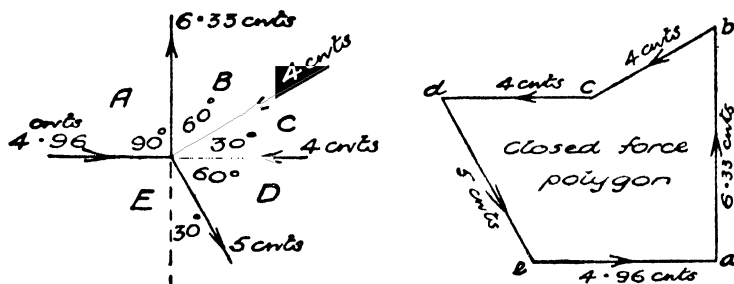 6·33 cwts
A
B
4 cwts
60°
cwts
4·96
90°
30°
C
4 cwts
60°
E
D
30°
5 cwts
b
4 cwts
d
4 cwts
c
closed force
polygon
6·33 cwts
5 cwts
e
4·96 cwts
a